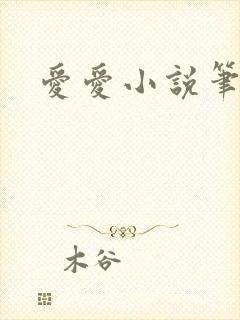 愛愛小說筆
木谷